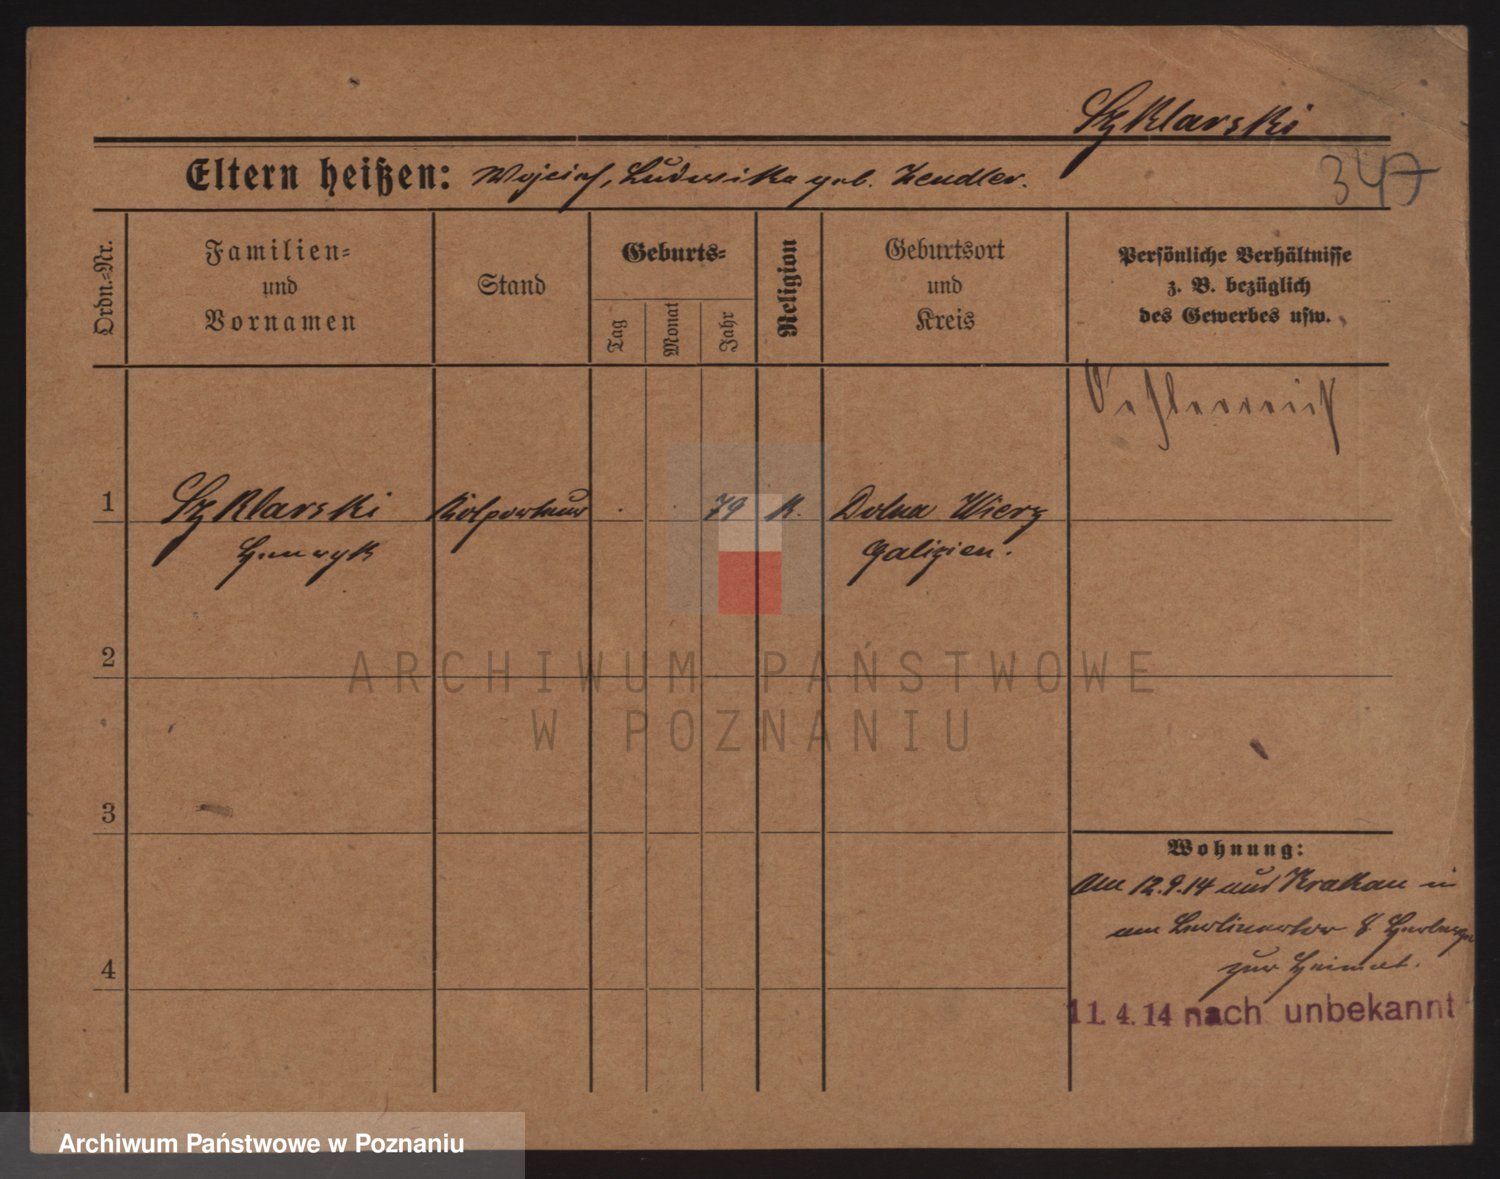 Szklarski
347
Eltern heißen: Wojciech, Ludwika geb. Zendler.
Ordn.-Nr.
Familien-
und
Vornamen
Stand
Geburts-
Tag
Monat
Jahr
Religion
Geburtsort
und
Kreis
Persönliche Verhältnisse
z. B. bezüglich
des Gewerbes usw.
Oesterreich
1 Szklarski Kolporteur 79 K. Dolna Wierz
Henryk Galizien.
2
3
4
Wohnung:
Am 12.9.14 aus Krakau in
am Berlinertor 8 Herberge
zur Heimat.
11. 4. 14 nach unbekannt
ARCHIWUM PAŃSTWOWE
W POZNANIU
Archiwum Państwowe w Poznaniu